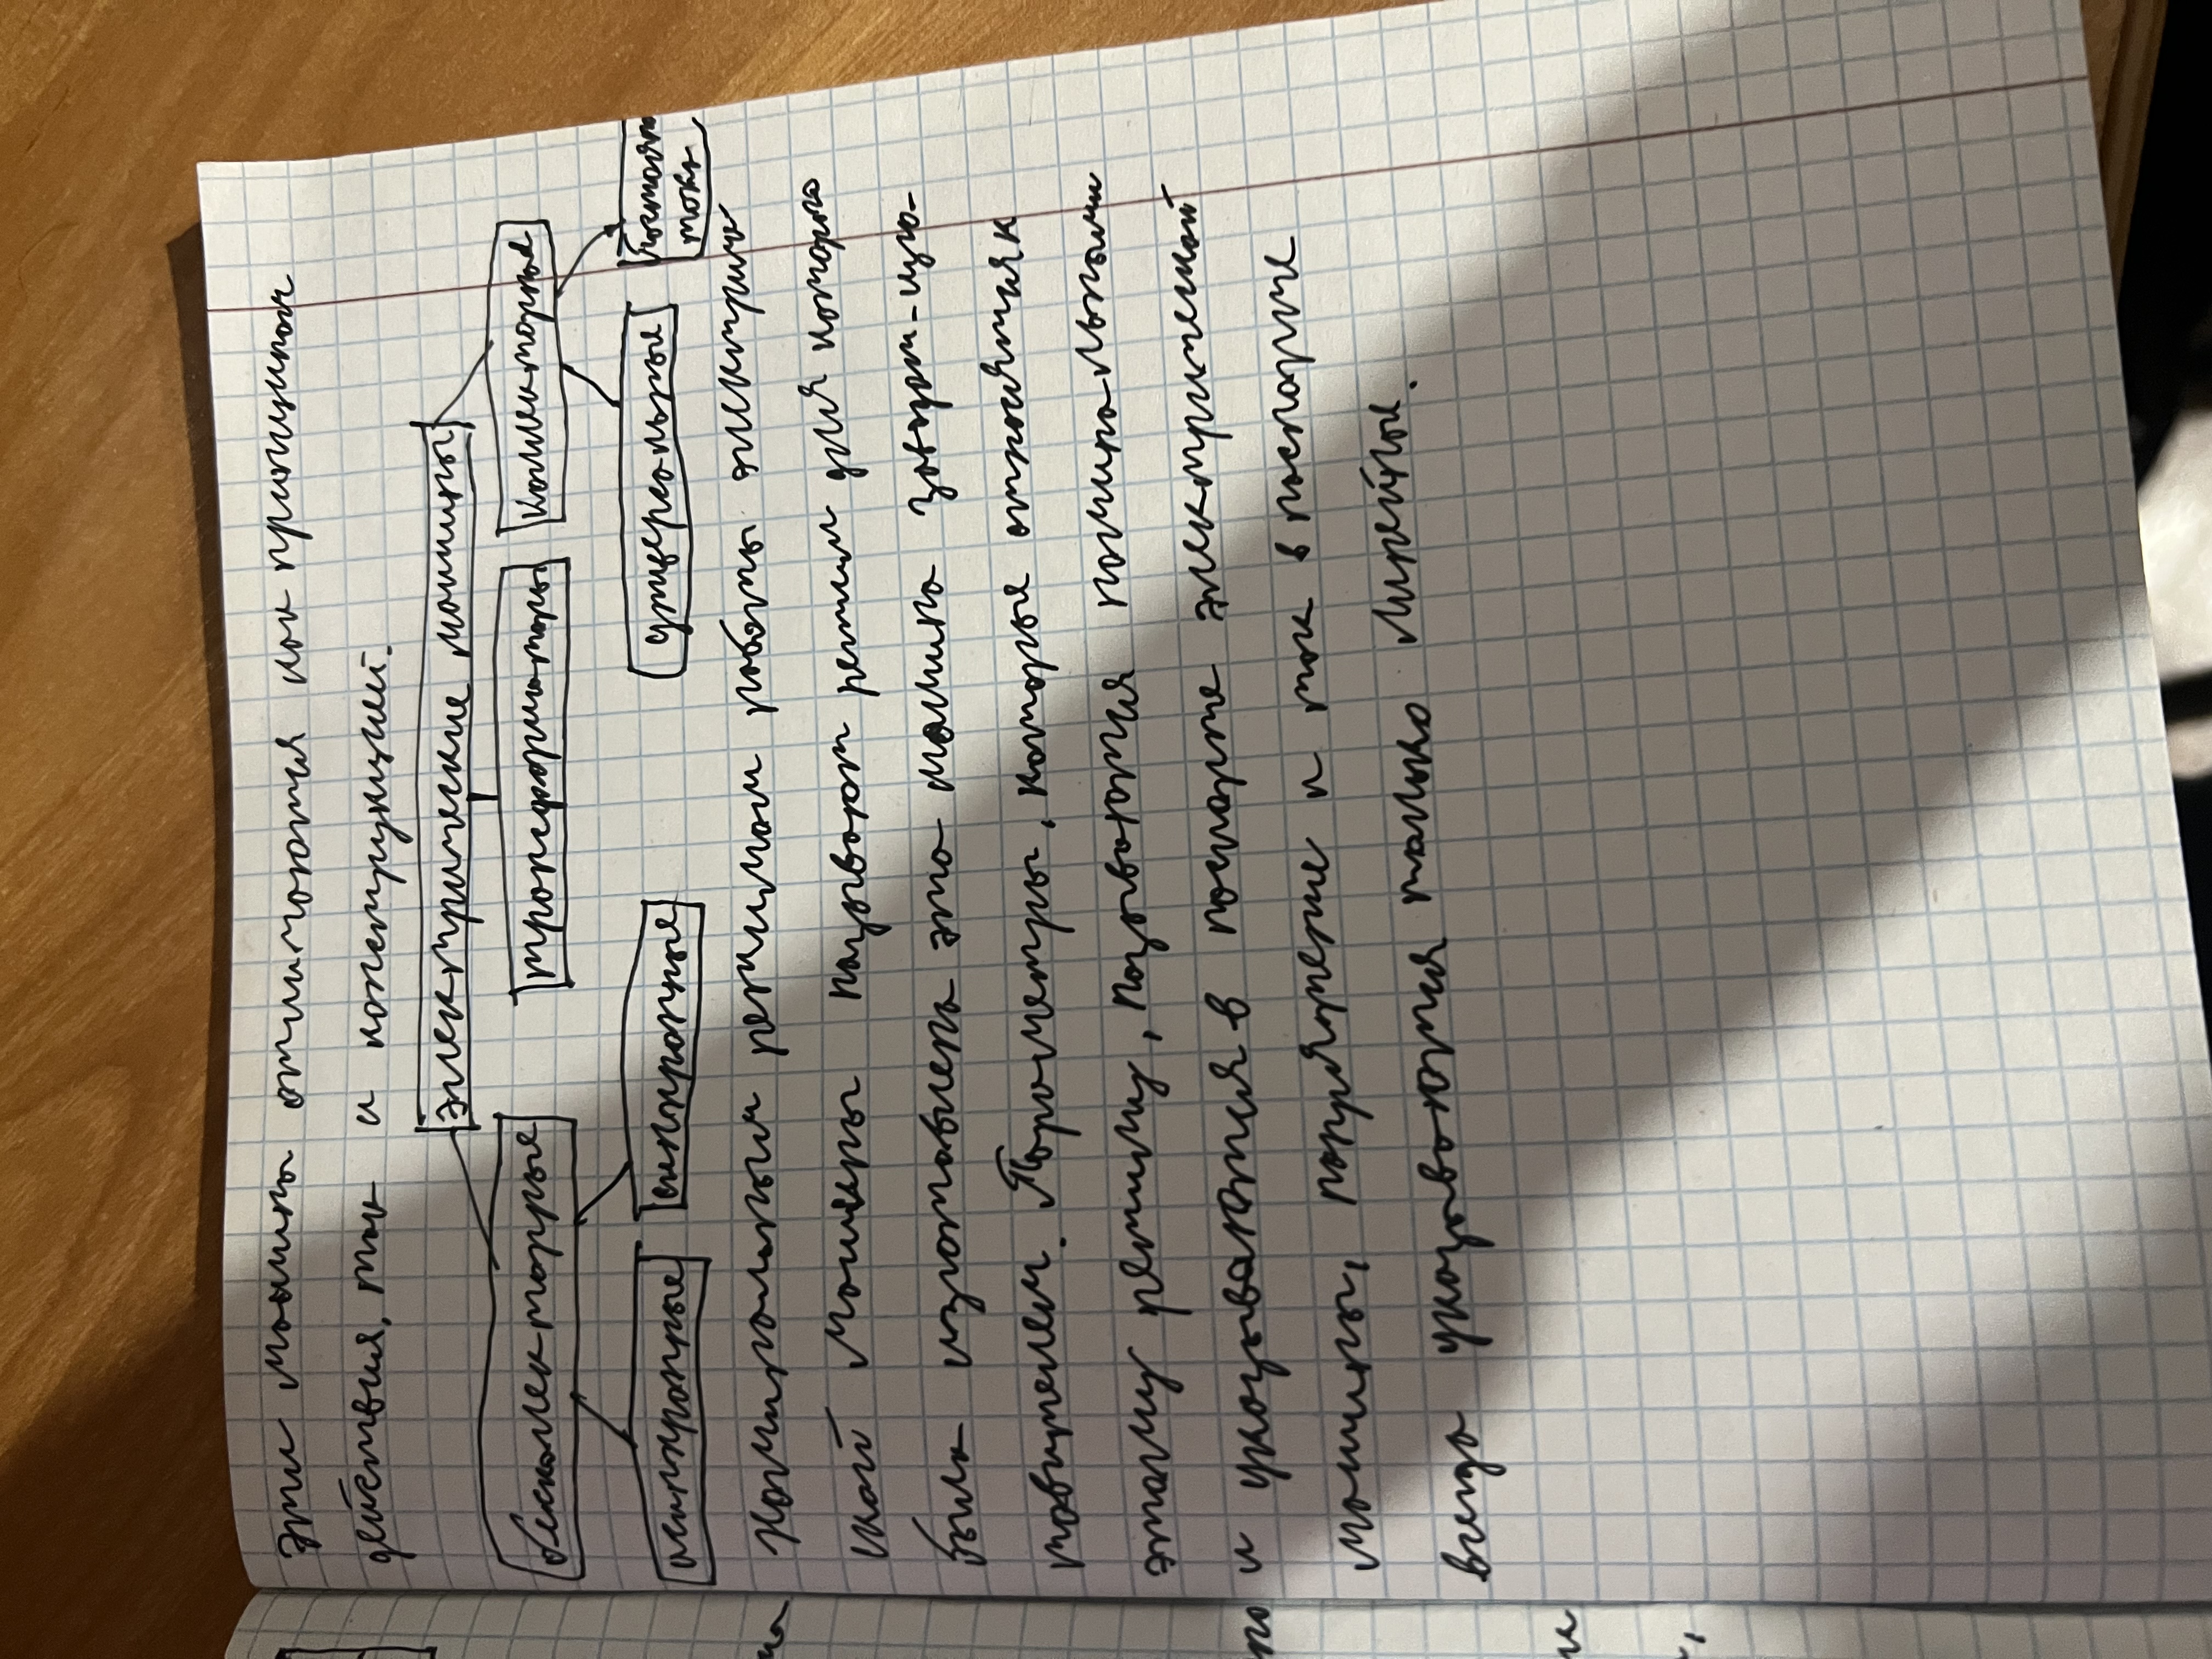 Эти машины отличаются как принципом
действия, так и конструкцией.
электрические машины
бесколлекторные
трансформаторы
коллекторные
асинхронные
синхронные
универсальные
постоян
тока
Номинальным режимом работы электриче
ской машины называют режим для которого
была изготовлена эта машина
товителем. Параметры, которые относятся к
этому режиму, называются номинальными
и указываются в паспорте электрической
машины, напряжение и ток в паспорте
всегда указываются только линейные.